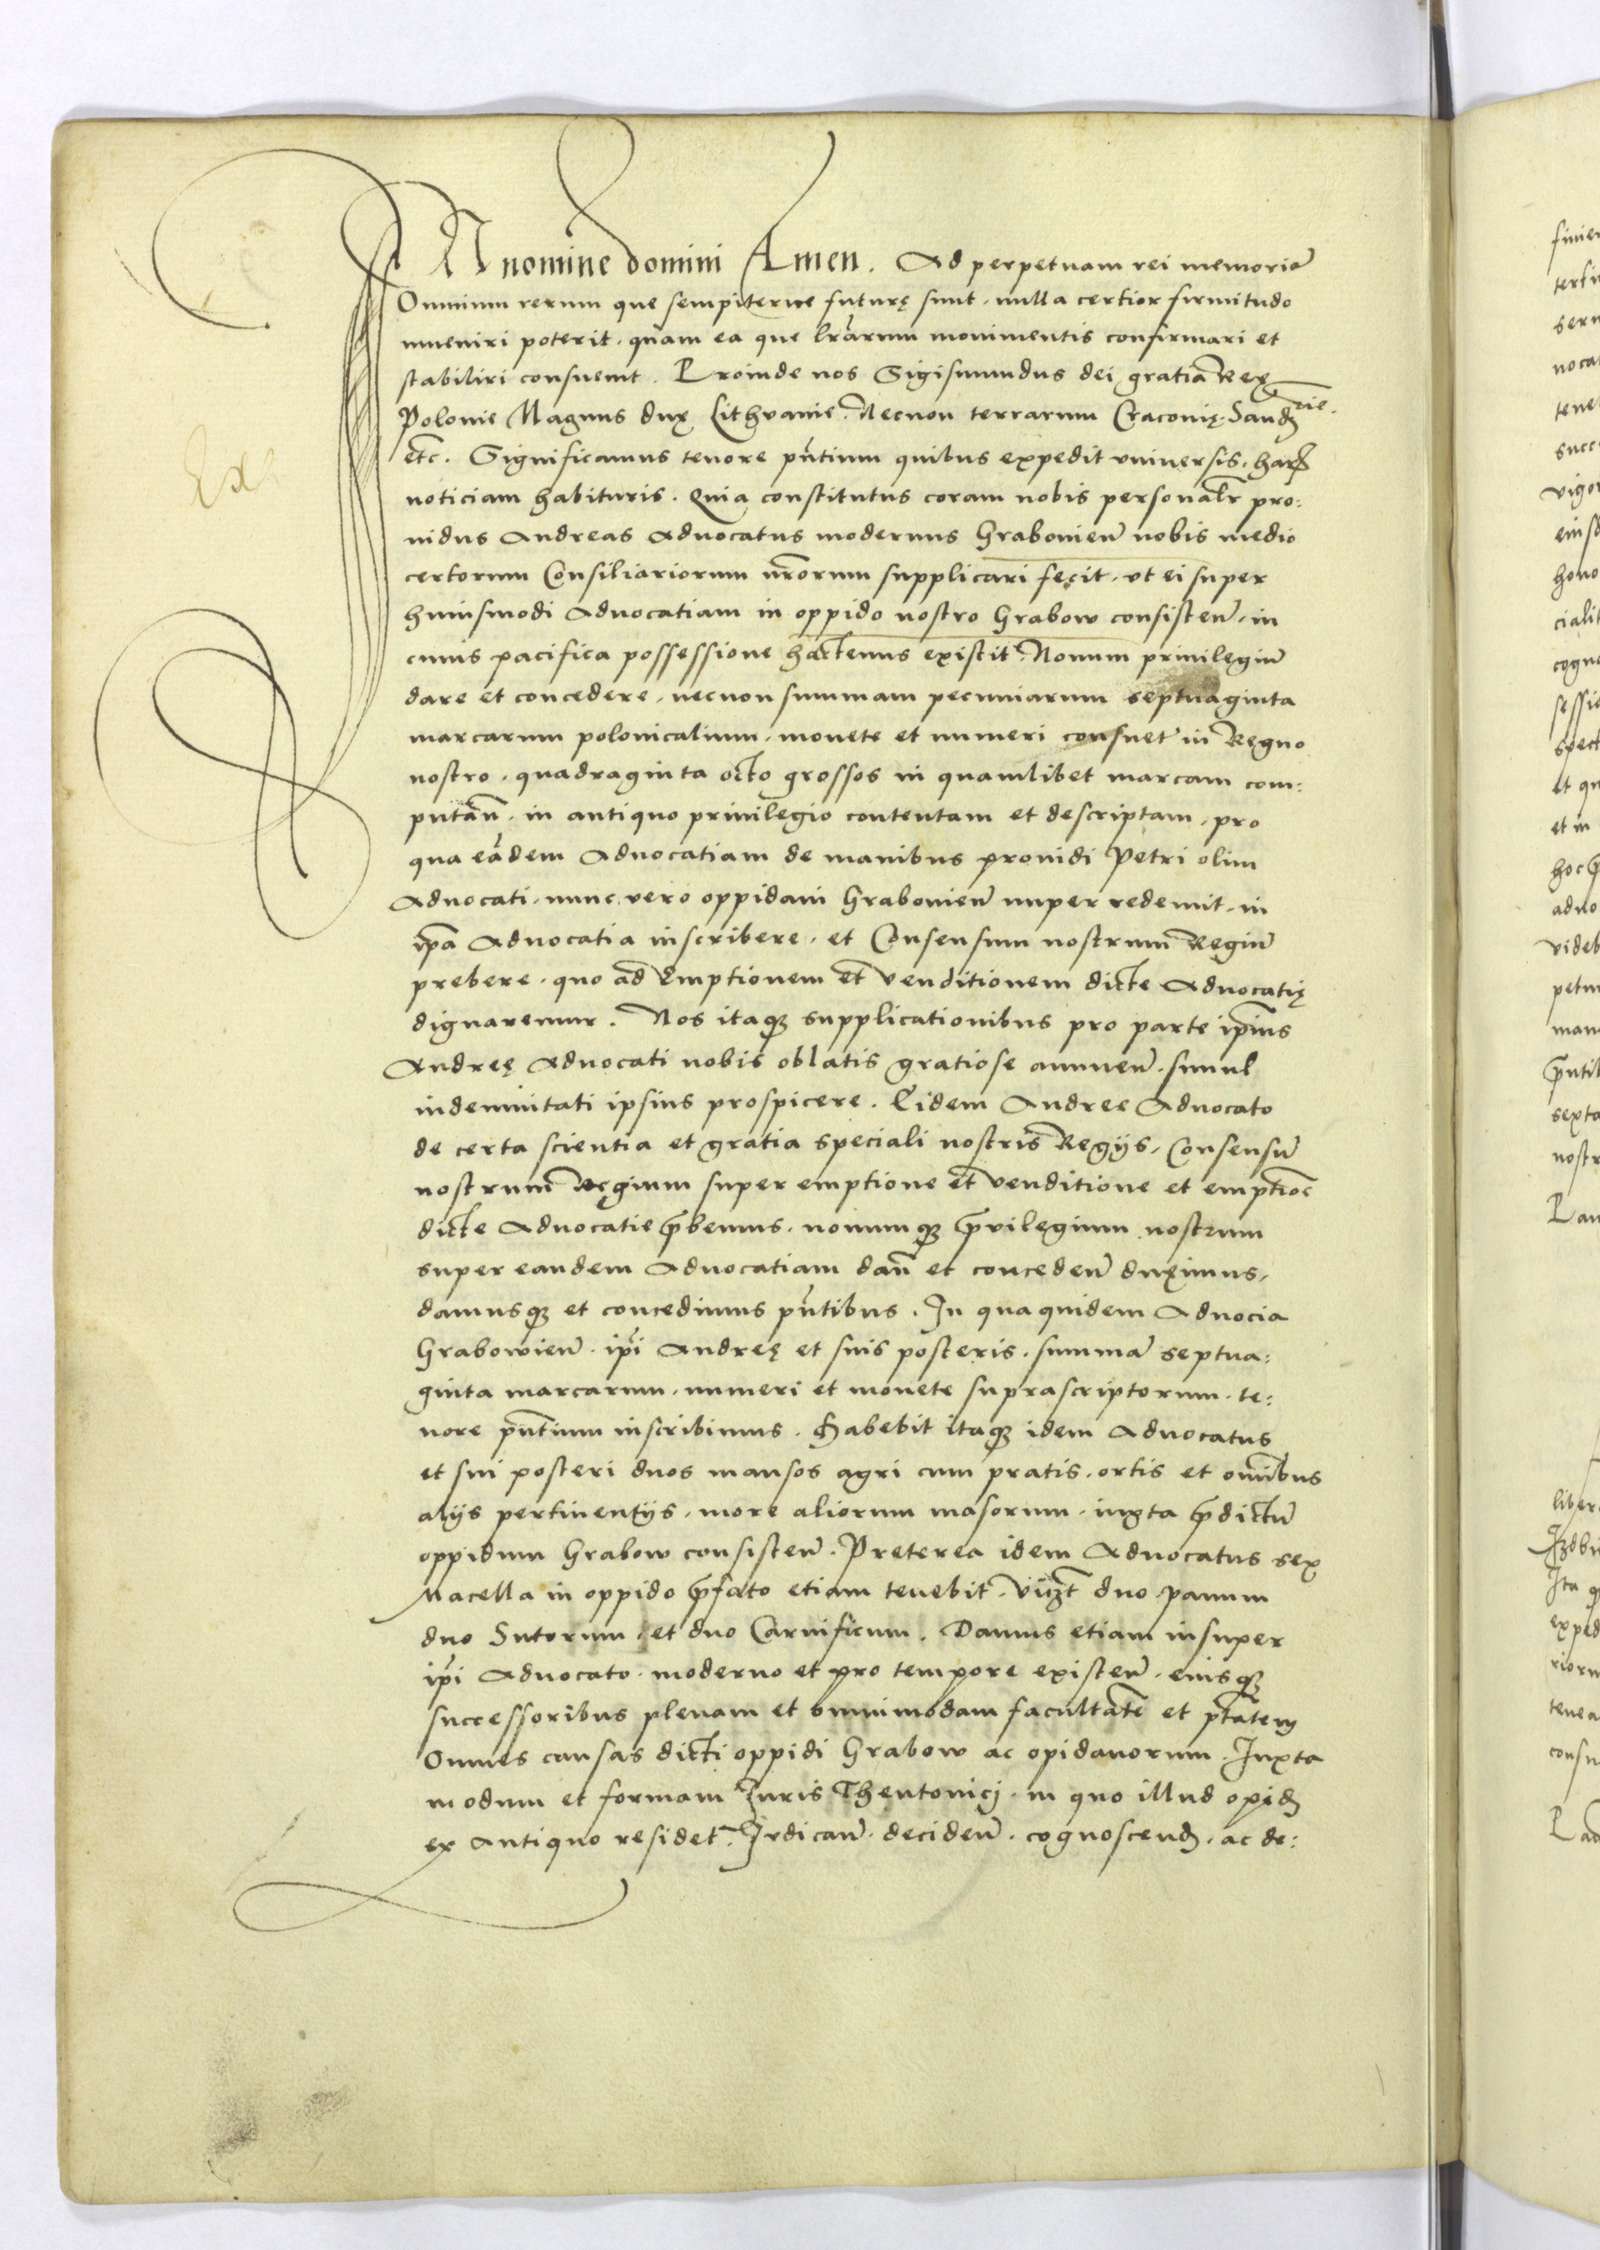 IN nomine domini Amen. Ad perpetuam rei memoriã
Omnium rerum que sempiterne futurę sunt, nulla certior firmitudo
inueniri poterit, quam ea que lr̃arum monimentis confirmari et
stabiliri consueuit. Proinde nos Sigismundus dei gratia Rex
Polonie Magnus dux Lithuanie. Necnon terrarum Cracouię. Sandꝫ rie.
etc. Significamus tenore pñtium quibus expedit vniuersis. harꝫ
noticiam habituris. Quia constitutus coram nobis personalr̃ pro:
uidus Andreas Aduocatus modernus Grabouieñ nobis medio
certorum Consiliariorum nr̃orum supplicari fecit, vt ei super
huiusmodi Aduocatiam in oppido nostro Grabow consisteñ, in
cuius pacifica possessione hactenus existit. Nouum priuilegiũ
dare et concedere, necnon summam pecuniarum septuaginta
marcarum polonicalium, monete et numeri consuet̃ in Regno
nostro, quadraginta octo grossos in quamlibet marcam com:
putañ, in antiquo priuilegio contentam et descriptam, pro
qua eãdem Aduocatiam de manibus prouidi Petri olim
Aduocati, nunc vero oppidani Grabouieñ nuper redemit, in
ip̃a Aduocatia inscribere, et Consensum nostrum Regiũ
prebere, quo ad Emptionem et venditionem dicte Aduocatię
dignaremur. Nos itaqꝫ supplicationibus pro parte ip̃ius
Andreę Aduocati nobis oblatis gratiose annueñ, simul
indemnitati ipsius prospicere. Eidem Andree Aduocato
de certa scientia et gratia speciali nostris Regijs, Consensũ
nostrum Regium super emptione et venditione et emptioẽ
dicte Aduocatie p̃bemus, nouumqꝫ p̃uilegium nostrum
super eandem Aduocatiam dañ et concedeñ duximus,
damusqꝫ et concedimus pñtibus. In qua quidem Aduocia
Grabowieñ, ip̃i Andreę et suis posteris, summã septua:
ginta marcarum, numeri et monete suprascriptorum, te:
nore pñtium inscribimus. Habebit itaqꝫ idem Aduocatus
et sui posteri duos mansos agri cum pratis, ortis et omĩbus
alijs pertinentijs, more aliorum masorum, iuxta p̃dictũ
oppidum Grabow consisteñ. Preterea idem Aduocatus sex
Macella in oppido p̃fato etiam tenebit, vicꝫt duo panum
duo Sutorum, et duo Carnificum. Damus etiam insuper
ip̃i Aduocato, moderno et pro tempore existeñ, eiusqꝫ
successoribus plenam et omnimodam facultatẽ et ptãtem
Omnes causas dicti oppidi Grabow ac opidanorum, Iuxta
modum et formam Iuris Theutonicj, in quo illud opidꝫ
ex Antiquo residet, Iudicañ, decideñ, cognoscendꝫ, ac de: